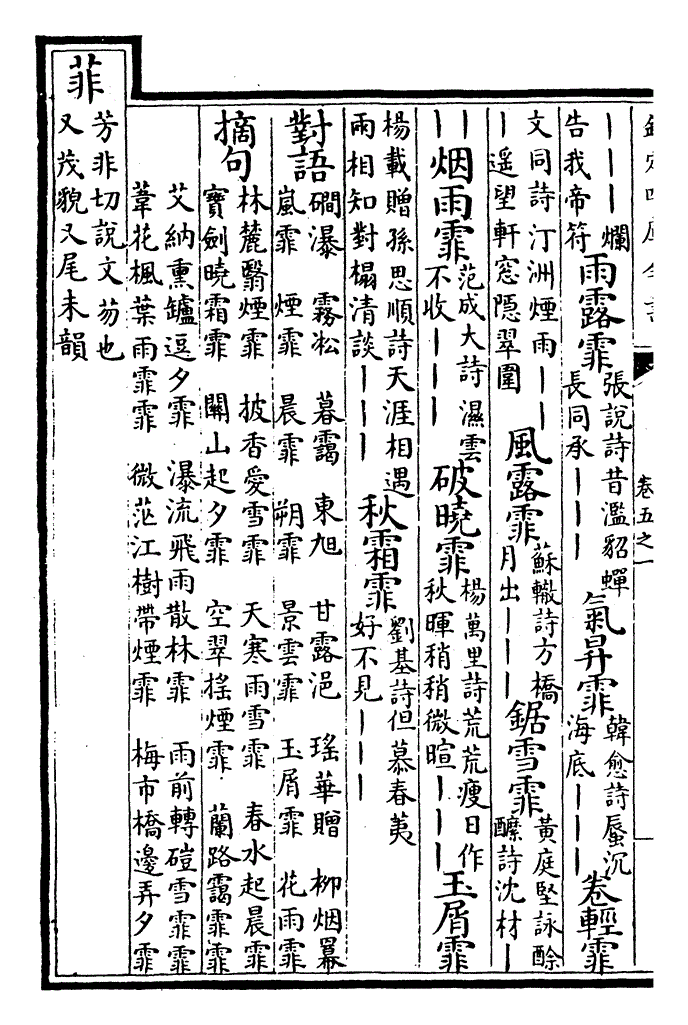 欽定四庫全書
卷五之一
｜｜｜爛
告我帝符
雨露霏
張説詩昔濫貂蟬
長同承｜｜｜
氣昇霏
韓愈詩蜃沉
海底｜｜｜
卷輕霏
文同詩汀洲煙雨｜｜
｜遥望軒窓隠翠圍
風露霏
蘇轍詩方橋
月出｜｜｜
鋸雪霏
黄庭堅詠酴
醿詩沈材｜
｜｜
烟雨霏
范成大詩濕雲
不收｜｜｜
破曉霏
楊萬里詩荒荒瘦日作
秋暉稍稍微暄｜｜｜
玉屑霏
楊載贈孫思順詩天涯相遇
兩相知對榻清談｜｜｜
秋霜霏
劉基詩但慕春荑
好不見｜｜｜
對語
磵瀑　霧凇　暮靄　東旭　甘露浥　瑤華贈　柳烟羃
嵐霏　煙霏　晨霏　朔霏　景雲霏　玉屑霏　花雨霏
摘句
林麓翳煙霏　披香愛雪霏　天寒雨雪霏　春水起晨霏
寶劍曉霜霏　關山起夕霏　空翠搖煙霏　蘭路靄霏霏
艾納熏鑪逗夕霏　瀑流飛雨散林霏　雨前轉磑雪霏霏
葦花楓葉雨霏霏　微茫江樹帶煙霏　梅市橋邊弄夕霏
菲
芳非切説文芴也
又茂貌又尾未韻